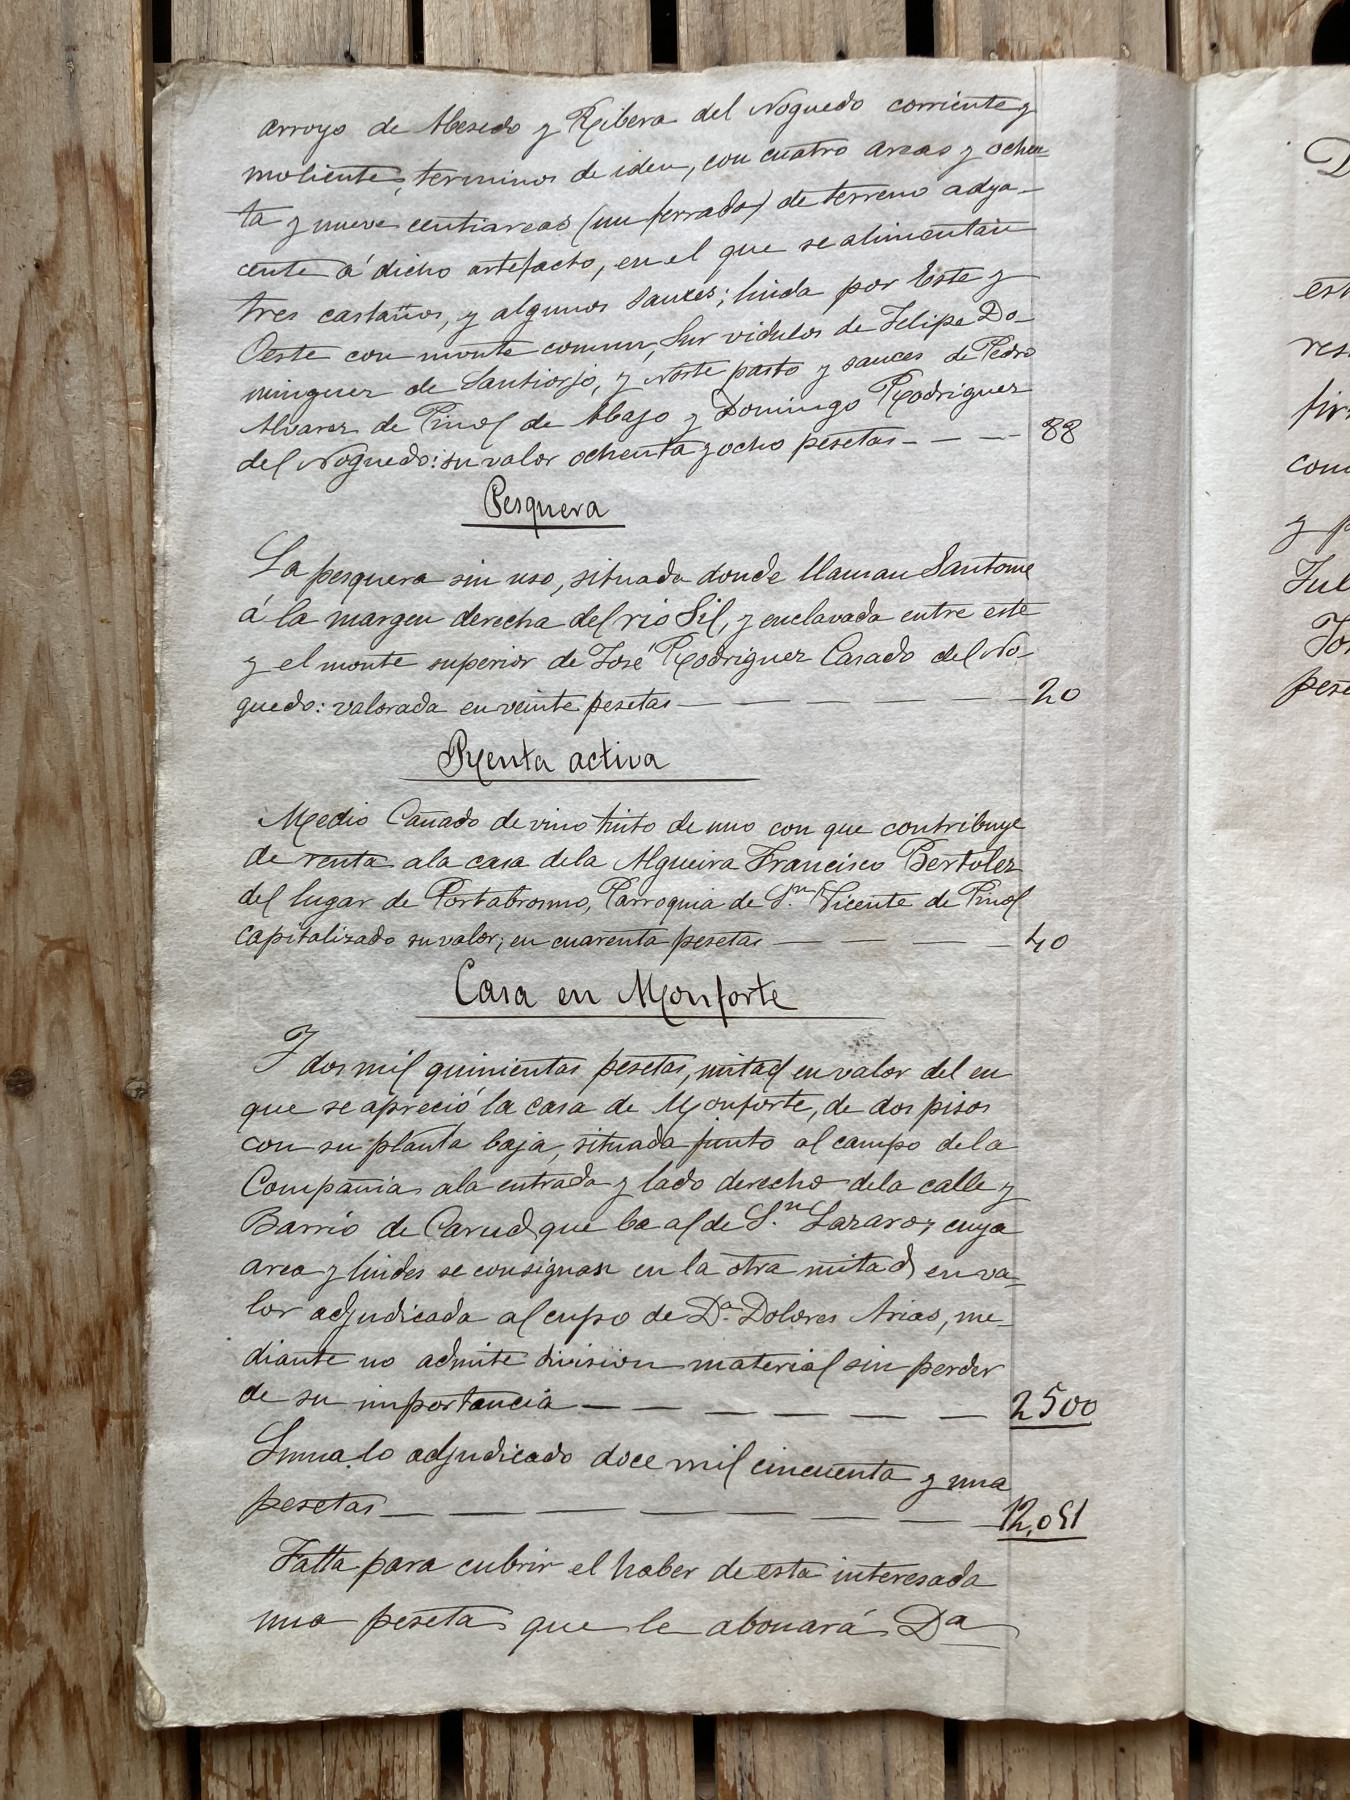 arroyo de Abesedo y Ribera del Noguedo corriente y
moliente, terminos de iden, con cuatro areas y ochen-
ta y nueve centiareas (un ferrado) de terreno adya-
cente á dicho artefacto, en el que se alimentan
tres castaños, y algunos sauces; linda por Este y
Oeste con monte comun, Sur vidulos de Felipe Do-
minguez de Santiorjo, y Norte pasto y sauces de Pedro
Alvarez de Pinol de Abajo y Domingo Rodriguez
del Noguedo: su valor ochenta y ocho pesetas - - - - 88
Pesquera
La pesquera sin uso, situada donde llaman Santome
á la margen derecha del rio Sil, y enclavada entre este
y el monte superior de José Rodriguez Casado del No-
guedo: valorada en veinte pesetas — — — — — — 20
Renta activa
Medio Cañado de vino tinto de uno con que contribuye
de renta ala casa dela Algueira Francisco Bertolez
del lugar de Portabrosmo, Parroquia de S.n Vicente de Pinol
capitalizado su valor; en cuarenta pesetas — — — — 40
Casa en Monforte
Y dos mil quinientas pesetas, mitad en valor del en
que se apreció la casa de Monforte, de dos pisos
con su planta baja, situada junto al campo de la
Compañia ala entrada y lado derecho dela calle y
Barrio de Carud que ba al de S.n Lazaro; cuya
area y lindes se consignan en la otra mitad en va-
lor adjudicada al cupo de D.a Dolores Arias, me-
diante no admite division material sin perder
de su importancia — — — — — — — 2500
Suma lo adjudicado doce mil cincuenta y una
pesetas — — — — — — — — 12,051
Falta para cubrir el haber de esta interesada
una peseta que le abonará Da
D
est
res
fir
com
y p
Jul
Jo
pese